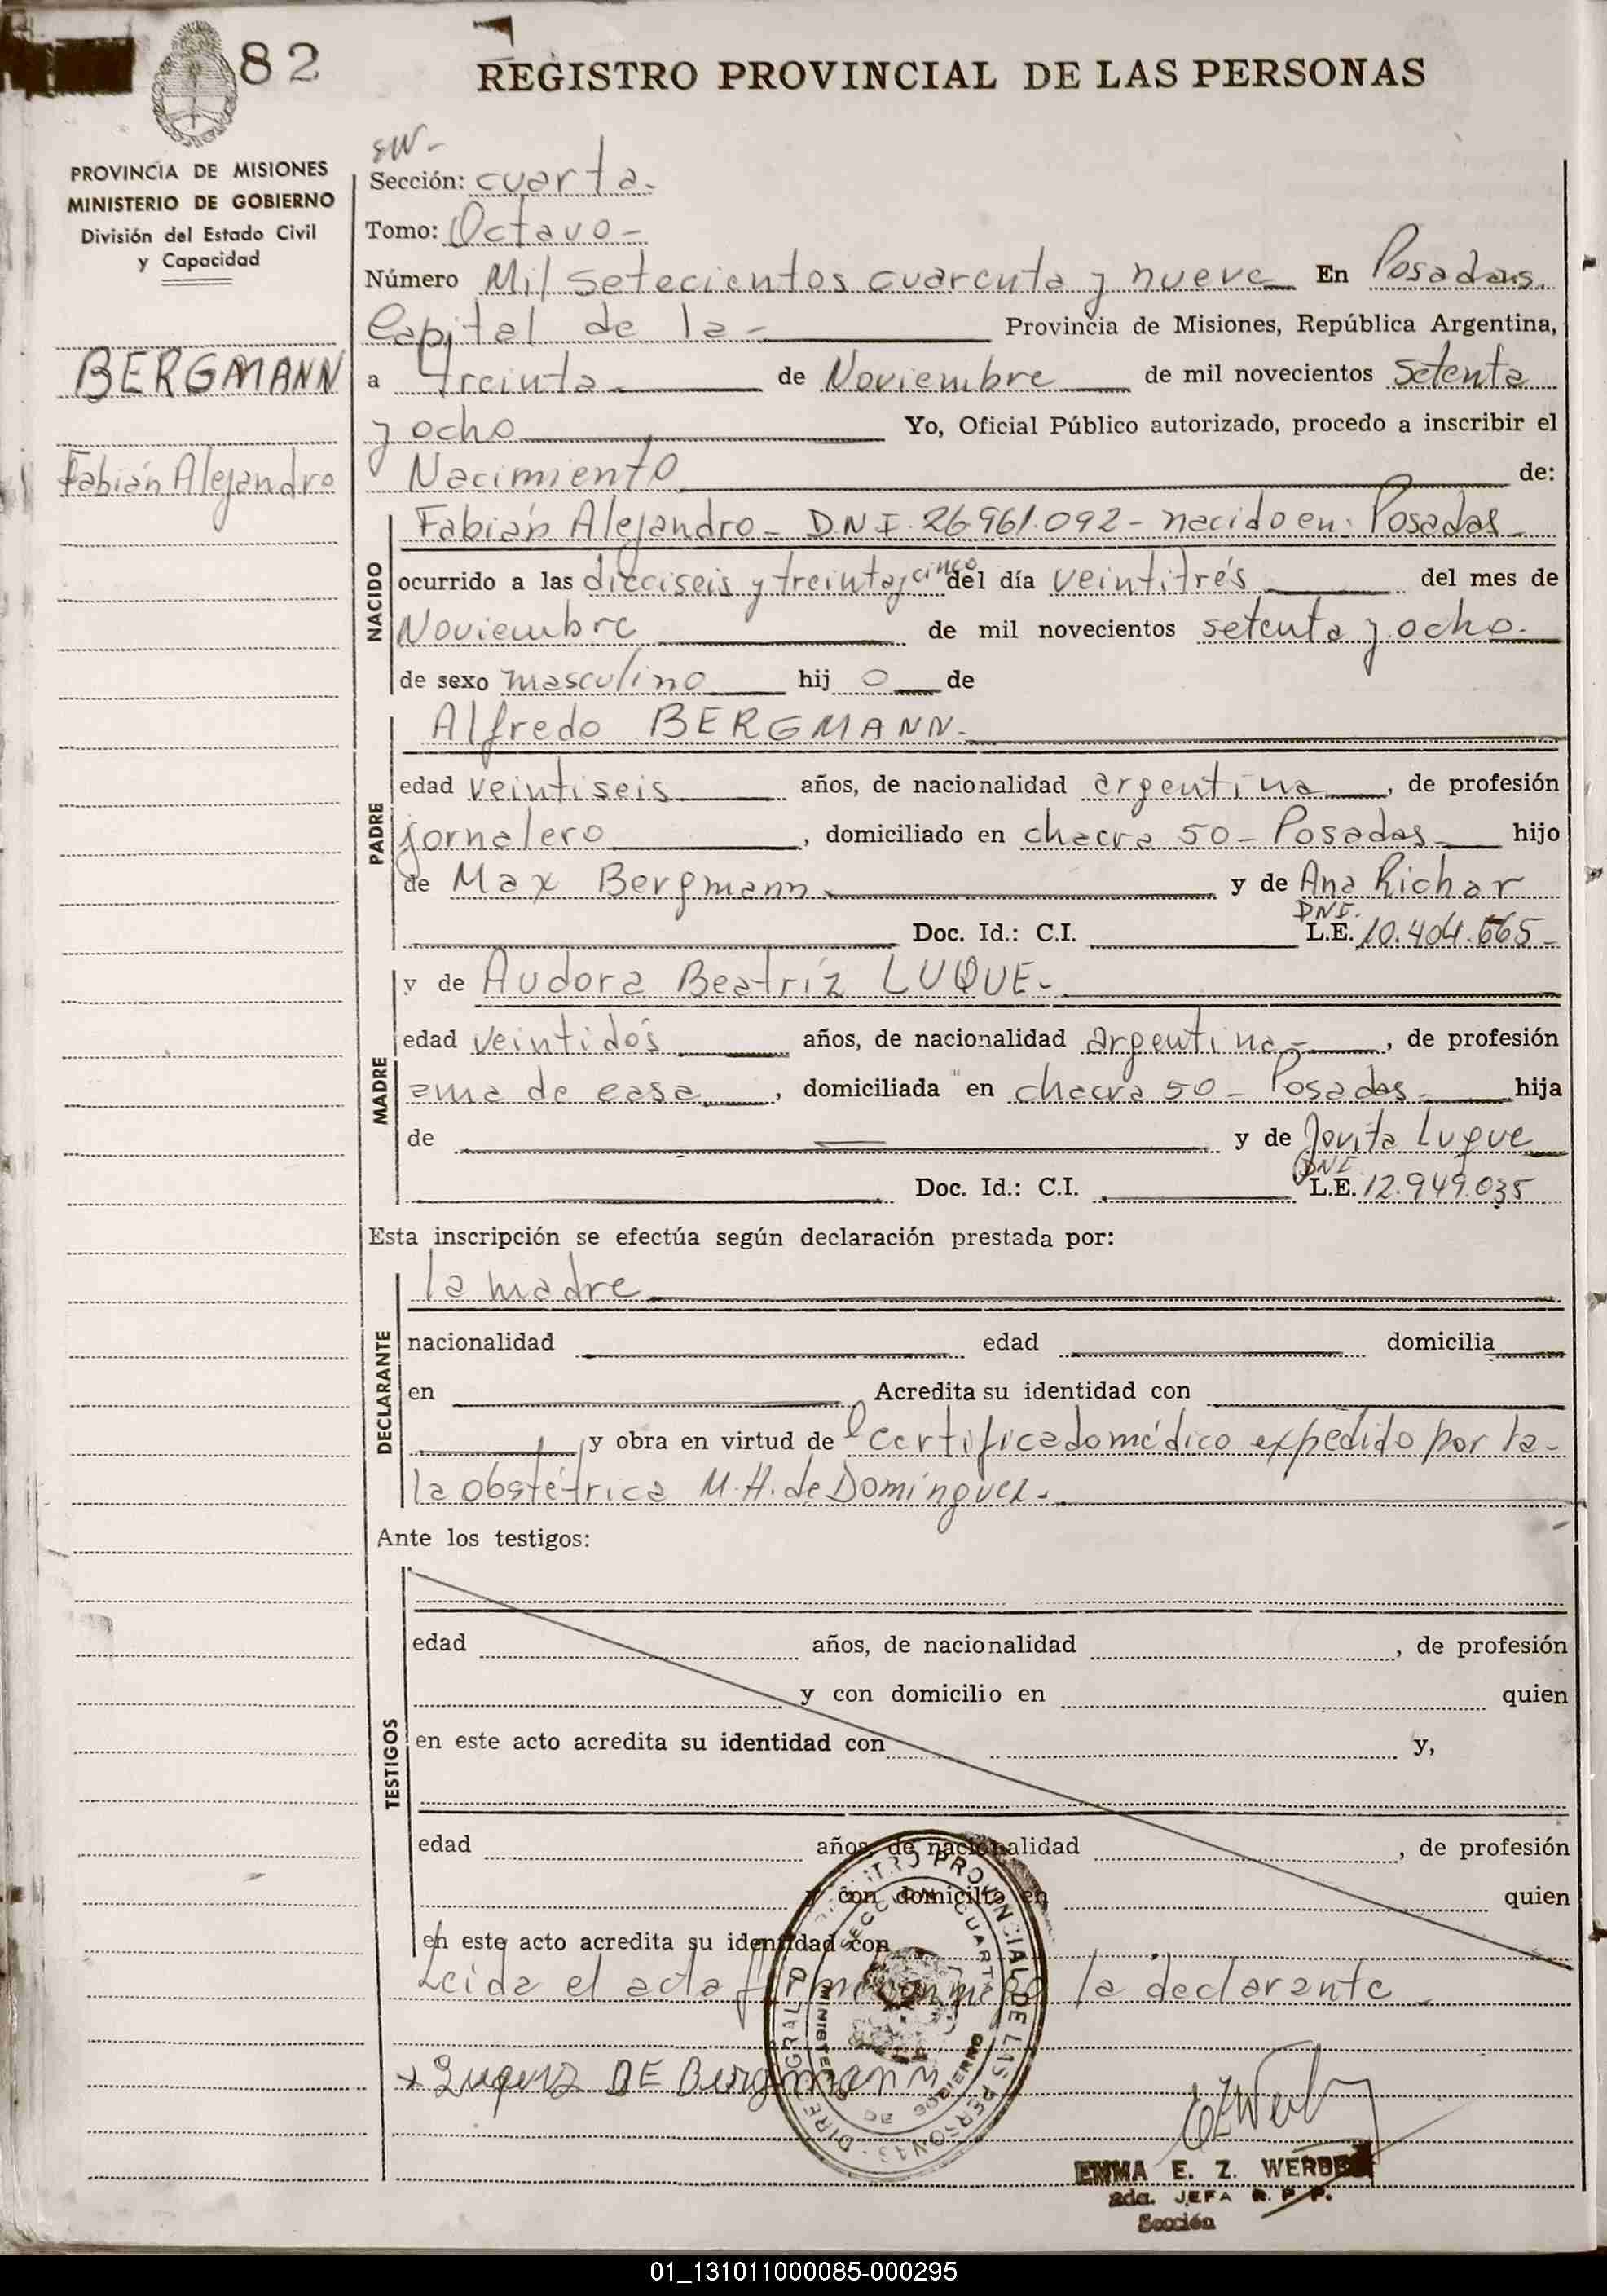 82
REGISTRO PROVINCIAL DE LAS PERSONAS
PROVINCIA DE MISIONES
MINISTERIO DE GOBIERNO
División del Estado Civil
y Capacidad
BERGMANN
Fabián Alejandro
Sección: cuarta.
Tomo: Octavo -
Número Mil setecientos cuarenta y nueve En Posadas.
Capital de la - Provincia de Misiones, República Argentina,
a treinta de Noviembre de mil novecientos setenta
y ocho Yo, Oficial Público autorizado, procedo a inscribir el
Nacimiento de:
NACIDO
Fabián Alejandro - D.N.I. 26.961.092 - nacido en: Posadas
ocurrido a las dieciseis y treinta y cinco del día veintitrés del mes de
Noviembre de mil novecientos setenta y ocho.
de sexo masculino hij o de
PADRE
Alfredo BERGMANN.
edad veintiseis años, de nacionalidad argentina, de profesión
jornalero, domiciliado en chacra 50 - Posadas hijo
de Max Bergmann y de Ana Richar
DNI.
Doc. Id.: C.I. L.E. 10.404.665
MADRE
y de Audora Beatríz LUQUE -
edad veintidós años, de nacionalidad argentina -, de profesión
ama de casa, domiciliada en chacra 50 - Posadas hija
de y de Jovita Luque
DNI
Doc. Id.: C.I. L.E. 12.949.035
Esta inscripción se efectúa según declaración prestada por:
DECLARANTE
la madre
nacionalidad edad domicilia
en Acredita su identidad con
y obra en virtud de l certificado médico expedido por la -
la obstétrica M.H. de Domínguez.
Ante los testigos:
TESTIGOS
edad años, de nacionalidad , de profesión
y con domicilio en quien
en este acto acredita su identidad con y,
edad años, de nacionalidad , de profesión
y con domicilio en quien
en este acto acredita su identidad con
Leida el acta la declarante -
DE Bergmann
EMMA E. Z. WERBE
2da. JEFA R. P. P.
Sección
01_131011000085-000295